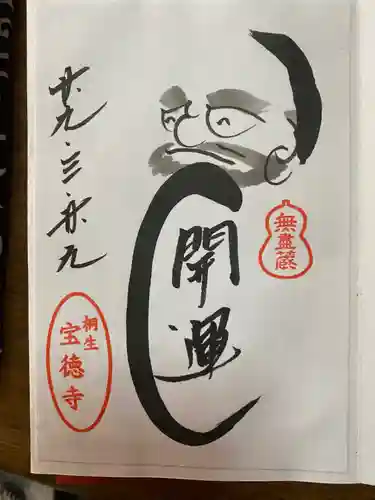 開運
無盡蔵
廿九.三.廿九
桐生
宝徳寺